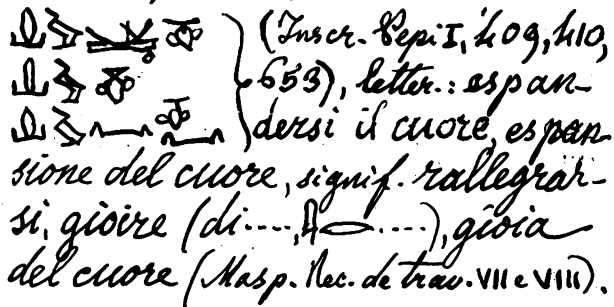 (Inscr. Pepi I, 409, 410,
653), letter.: espan-
dersi il cuore, espan-
sione del cuore, signif. rallegrar-
si, gioire (di...., 𓇋𓂋....), gioia
del cuore (Masp. Rec. de trav. VII e VIII).